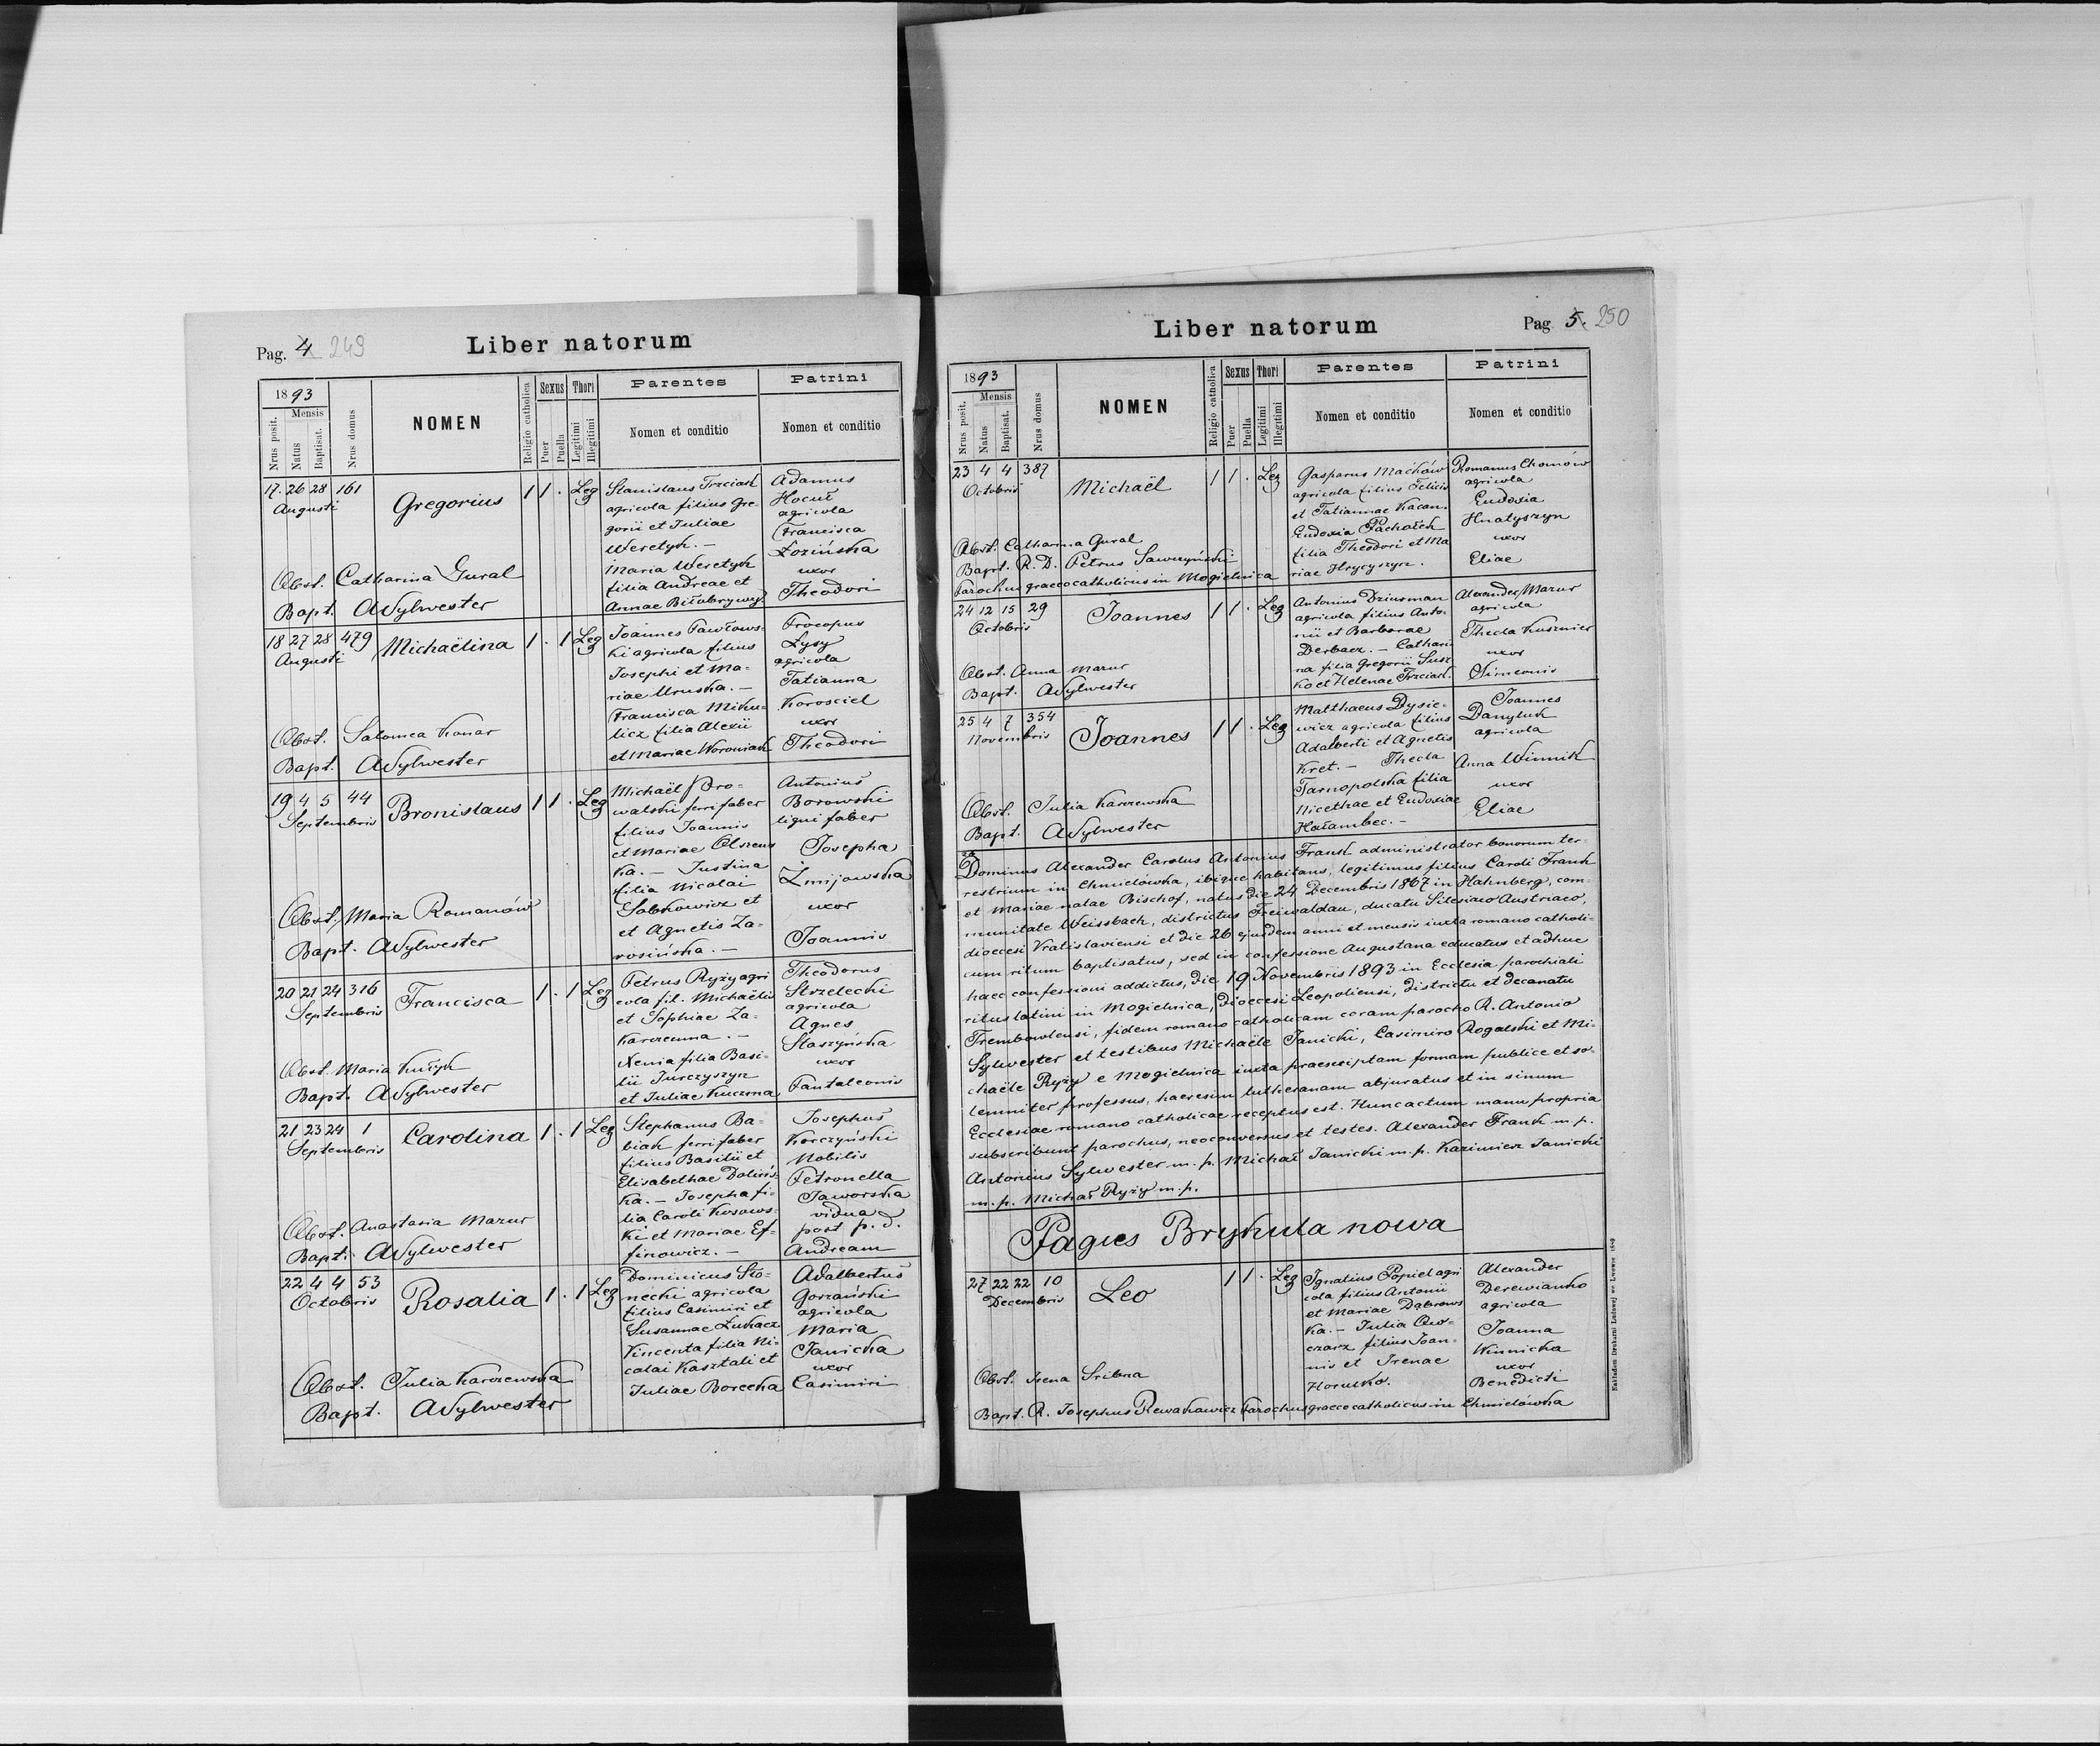 Pag. 4 249
Liber natorum
1893
Mensis
Nrus posit.
Natus
Baptisat.
Nrus domus
NOMEN
Religio catholica
Sexus
Puer
Puella
Thori
Legitimi
Illegitimi
Parentes
Nomen et conditio
Patrini
Nomen et conditio
17. 26 28 161
Augusti
Gregorius
1 1 . Leg
Stanislaus Trzciak
agricola filius Gre-
gorii et Juliae
Weretyk. -
Maria Weretyk
filia Andreae et
Annae Biłobrywy.
Adamus
Hocuł
agricola
Francisca
Łozińska
uxor
Theodori
Obst. Catharina Gural
Bapt. ASylwester
18 27 28 479
Augusti
Michaëlina
1 . 1 Leg
Joannes Pawłows-
ki agricola filius
Josephi et Ma-
riae Uruska. -
Francisca Miku-
licz filia Alexii
et Mariae Woroniak
Procopus
Łysy
agricola
Tatianna
Korosciel
uxor
Theodori
Obst. Salomea Konar
Bapt. ASylwester
19 4 5 44
Septembris
Bronislaus
1 1 . Leg
Michaël Bro-
walski ferri faber
filius Joannis
et Mariae Olszews
ka. - Justina
filia Nicolai
Sobkowicz et
et Agnetis Za-
rosińska. -
Antonius
Borowski
ligni faber
Josepha
Żmijowska
uxor
Joannis
Obst. Maria Romanów
Bapt. ASylwester
20 21 24 316
Septembris
Francisca
1 . 1 Leg
Petrus Ryży agri
cola fil. Michaëlis
et Sophiae Za-
karczemna. -
Xenia filia Basi-
lii Jurczyszyn
et Juliae Kuczma
Theodorus
Strzelecki
agricola
Agnes
Staszyńska
uxor
Pantaleonis
Obst. Maria
Bapt. ASylwester
21 23 24 1
Septembris
Carolina
1 . 1 Leg
Stephanus Ba-
biak ferri faber
filius Basilii et
Elisabethae Dolińs-
ka. - Josepha fi-
lia Caroli Kosows-
ki et Mariae Ef-
finowicz. -
Josephus
Korczyński
Nobilis
Petronella
Jaworska
vidua
post p. d.
Andream
Obst. Anastasia Mazur
Bapt. ASylwester
22 4 4 53
Octobris
Rosalia
1 . 1 Leg
Dominicus Sło-
necki agricola
filius Casimiri et
Susannae Łukacz
Vincenta filia Ni-
colai Kasztali et
Juliae Borecka
Adalbertus
Gorzański
agricola
Maria
Janicka
uxor
Casimiri
Obst. Julia Karczewska
Bapt. ASylwester
Liber natorum
Pag. 5. 250
1893
Mensis
Nrus posit.
Natus
Baptisat.
Nrus domus
NOMEN
Religio catholica
Sexus
Puer
Puella
Thori
Legitimi
Illegitimi
Parentes
Nomen et conditio
Patrini
Nomen et conditio
23 4 4 387
Octobris
Michaël
1 1 . Leg
Gasparus Maćków
agricola filius Felicis
et Tatiannae Kacan.
Eudoxia Pachołek
filia Theodori et Ma
riae Hrycyszyn.
Romanus Chomów
agricola
Eudoxia
Hnatyszyn
uxor
Eliae
Obst. Catharina Gural
Bapt. R. D. Petrus Sawczyński
Parochus graeco catholicus in Mogielnica
24 12 15 29
Octobris
Joannes
1 1 . Leg
Antonius Dziusman
agricola filius Anto-
nii et Barbarae
Derbacz. - Cathari
na filia Gregorii Susz
ko et Helenae Trzciak.
Alexander Mazur
agricola
Thecla Kusznier
uxor
Simeonis
Obst. Anna Mazur
Bapt. ASylwester
25 4 7 354
Novembris
Joannes
1 1 . Leg
Matthaeus Dysie-
wicz agricola filius
Adalberti et Agnetis
Kret. - Thecla
Tarnopolska filia
Nicethae et Eudoxiae
Hałambec. -
Joannes
Danyluk
agricola
Anna Winnik
uxor
Eliae
Obst. Julia Karczewska
Bapt. ASylwester
26
Dominus Alexander Carolus Antonius Frank administrator bonorum ter-
restrium in Chmielówka, ibique habitans, legitimus filius Caroli Frank
et Mariae natae Bischof, natus die 24 Decembris 1867 in Hahnberg, com-
munitate Weissbach, districtus Freiwaldau, ducatu Silesiaco Austriaco,
dioecesi Vratislaviensi et die 26 ejusdem anni et mensis iuxta romano catholi-
cum ritum baptisatus, sed in confessione Augustana educatus et adhuc
haec confessioni addictus, die 19 Novembris 1893 in Ecclesia parochiali
ritus latini in Mogielnica, Dioecesi Leopoliensi, districtu et decanatu
Trembowlensi, fidem romano catholicam coram parocho R. Antonio
Sylwester et testibus Michaële Janicki, Casimiro Rogalski et Mi-
chaële Ryży e Mogielnica iuxta praescriptam formam publice et so-
lemniter professus, haeresim lutheranam abjuratus et in sinum
Ecclesiae romano catholicae receptus est. Hunc actum manu propria
subscribunt parochus, neoconversus et testes. Alexander Frank m. p.
Antonius Sylwester m. p. Michał Janicki m. p. Kazimierz Janicki
m. p. Michał Ryży m. p.
Pagus Brykula nowa
27 22 22 10
Decembris
Leo
1 1 . Leg
Ignatius Popiel agri
cola filius Antonii
et Mariae Dąbrows
ka. - Julia Ow-
czarz filius Joan-
nis et Irenae
Horutko.
Alexander
Derewianko
agricola
Joanna
Winnicka
uxor
Benedicti
Obst. Irena Sribna
Bapt. R. Josephus Rewakowicz Parochus graeco catholicus in Chmielówka
Nakładem Drukarni Ludowej we Lwowie